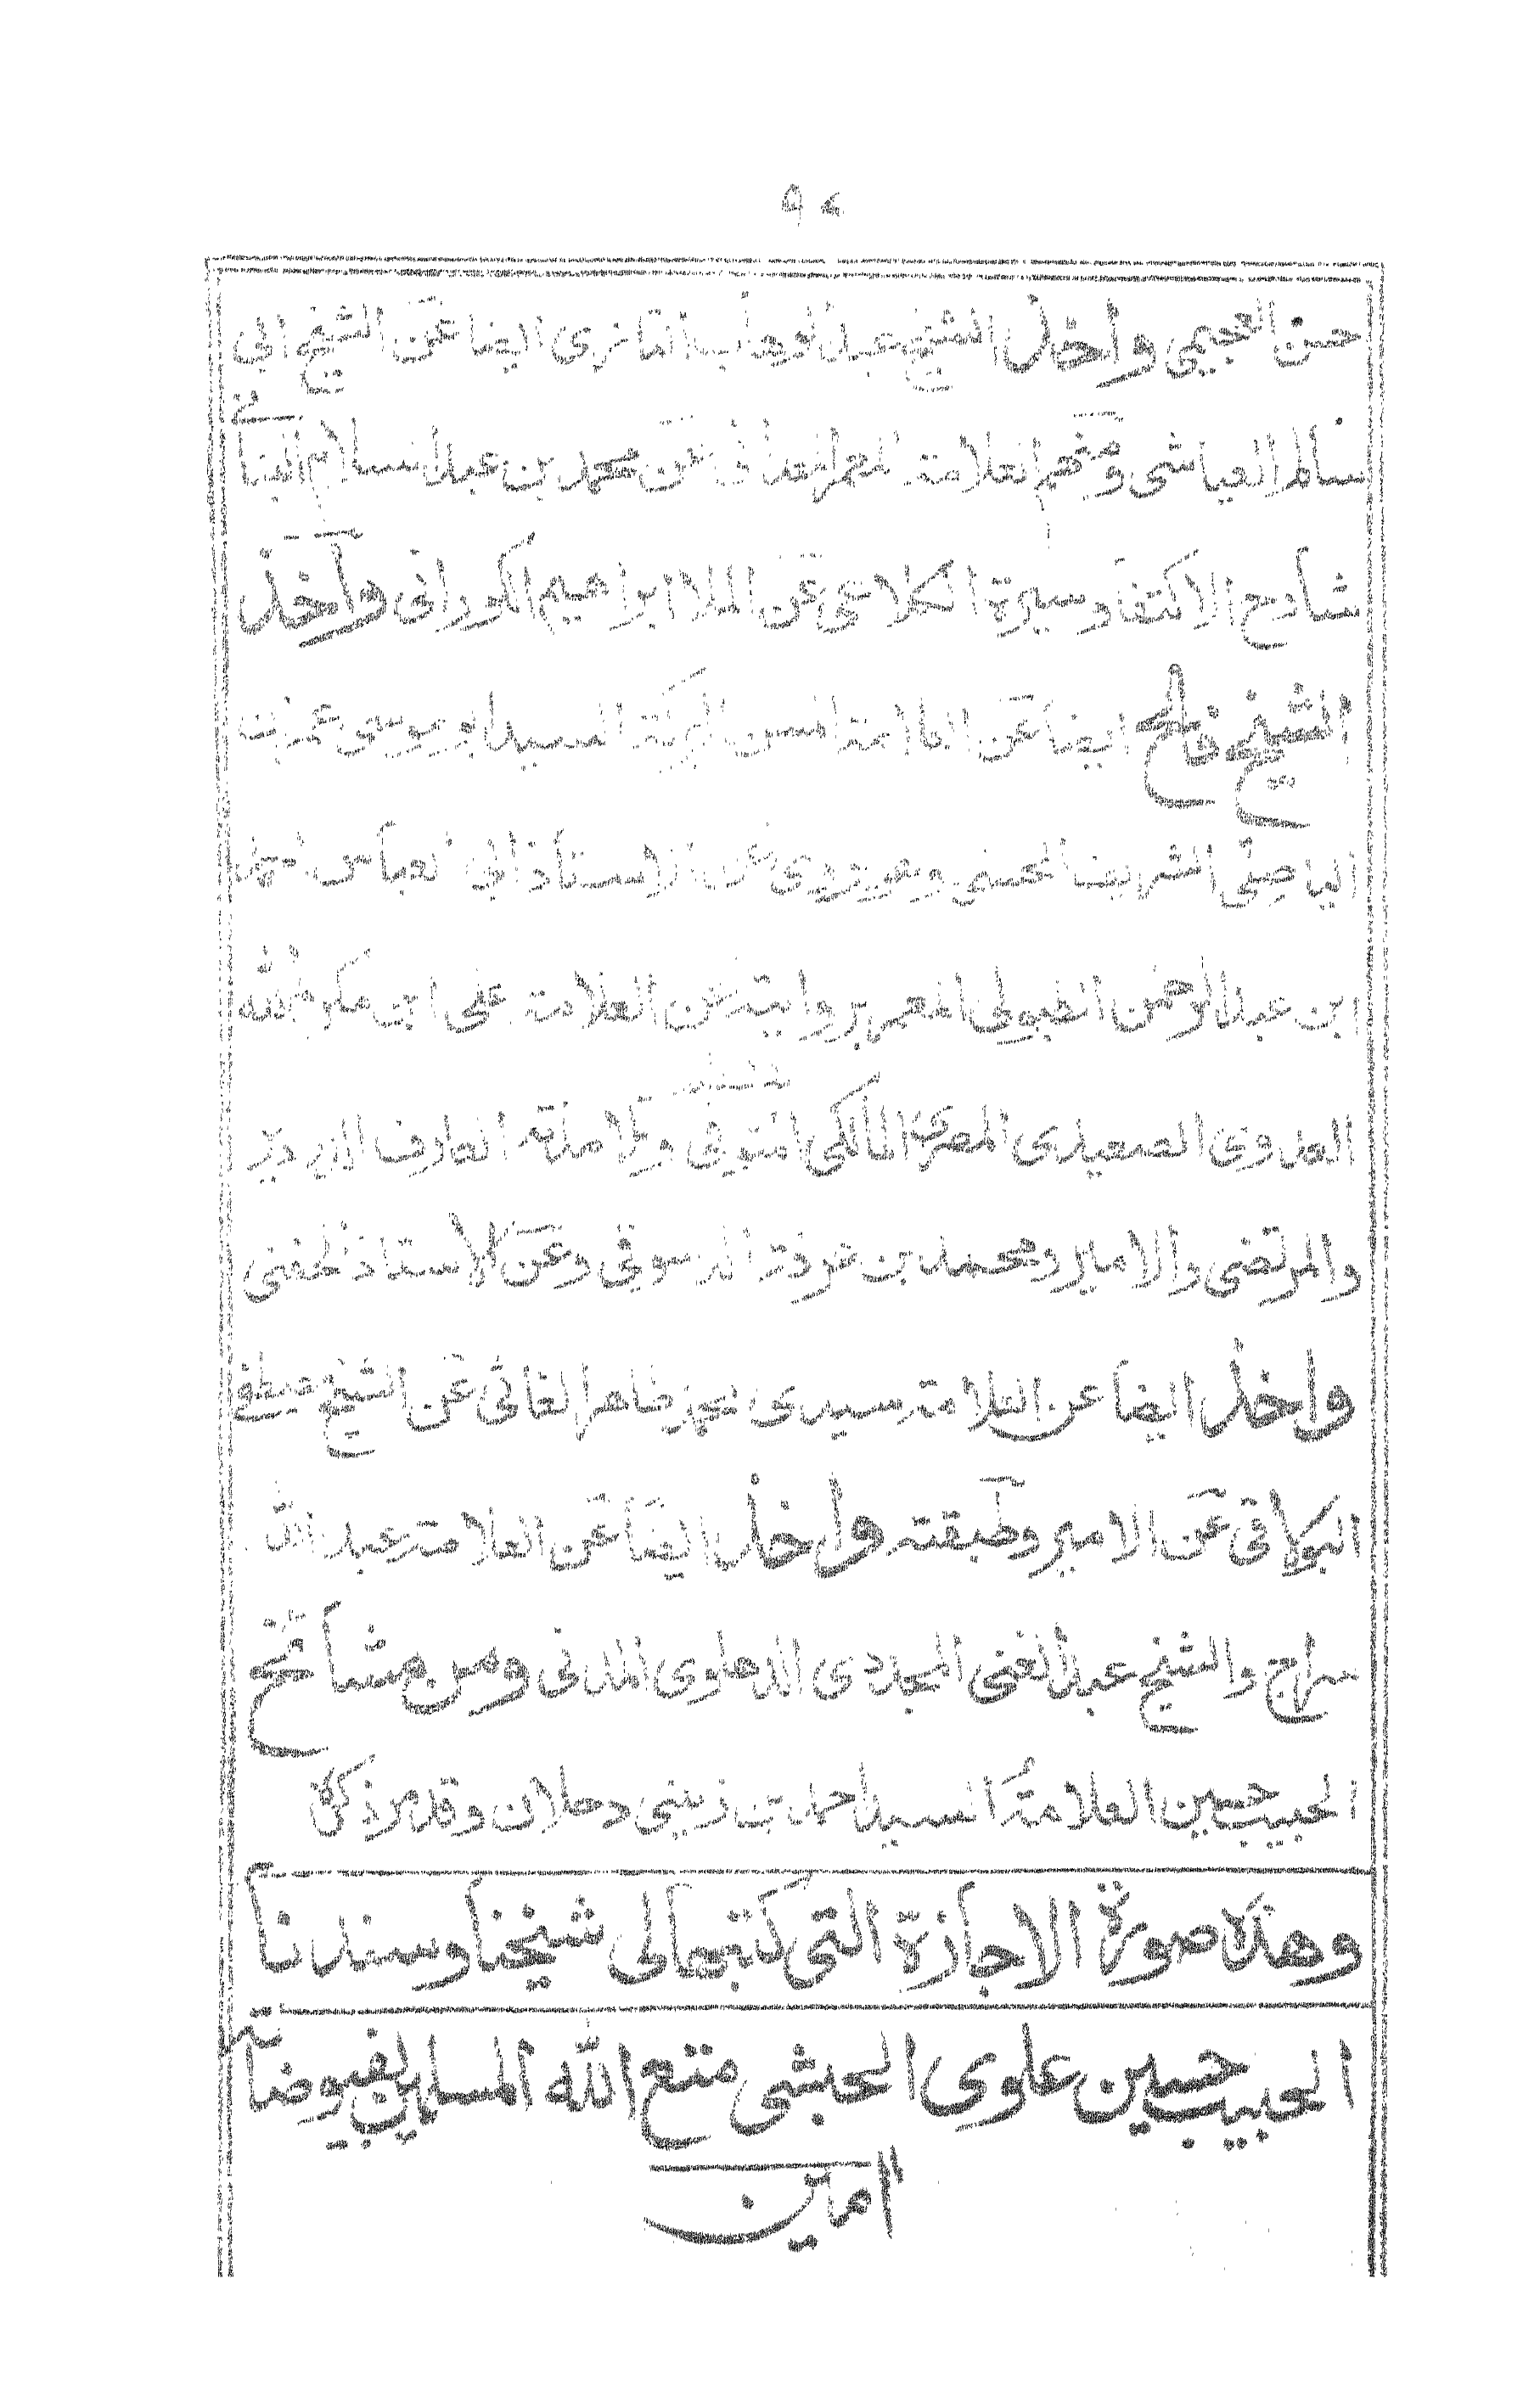 ٩٤
حسن العجيمى وأخذ الشيخ عبد الوهاب التازى ايضا عن الشيخ ابى
سالم العياشى ومنهم العلامة المعمر عن محمد بن عبد السلام البنانى
شارح الاكتفا وسيرة الكلاعى عن الملا ابراهيم الكورانى وأخذ
الشيخ فالح ايضا عن السيد ابو موسى عمران
الياصلى الشريف الحسنى عن الاستاذ ابى العباس احمد
ابن عبد الرحمن الطبولى المعمر بروايته عن العلامة على ابن مكرم الله
العدوى الصعيدى المصرى المالكى المتوفى وتلامذته العارف الدردير
والمرتضى والامير ومحمد بن عرفة الدسوقى وعن الاستاذ الحفنى
واخذ ايضا عن العلامة سيدى محمد ظاهر الغاتى عن الشيخ مصطفى
البولاقى عن الامير وطبقته واخذ ايضا عن العلامة عبد الله
سراج والشيخ عبد الغنى المجددى الدهلوى المدنى ومن مشائخ
الحبيب حسين العلامة السيد احمد بن زينى دحلان وقد مر ذكره
وهذه صورة الاجازة التى كتبها لى شيخنا وسندنا
الحبيب حسين علوى الحبشى متع الله المسلمين بفيوضاته
امين